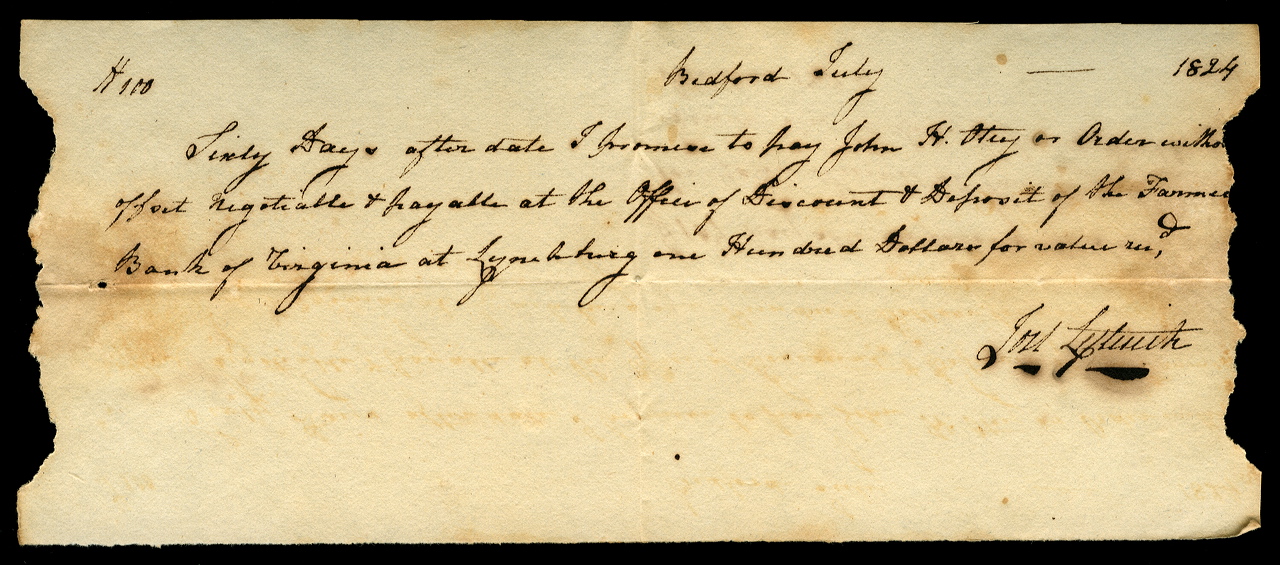 $100 Bedford July — 1824
Sixty Days after date I promise to pay John H. Otey or Order witho
offset negotiable & payable at the Office of Discount & Deposit of the Farmer
Bank of Virginia at Lynchburg one Hundred Dollars for value recd,
Joel Leftwich